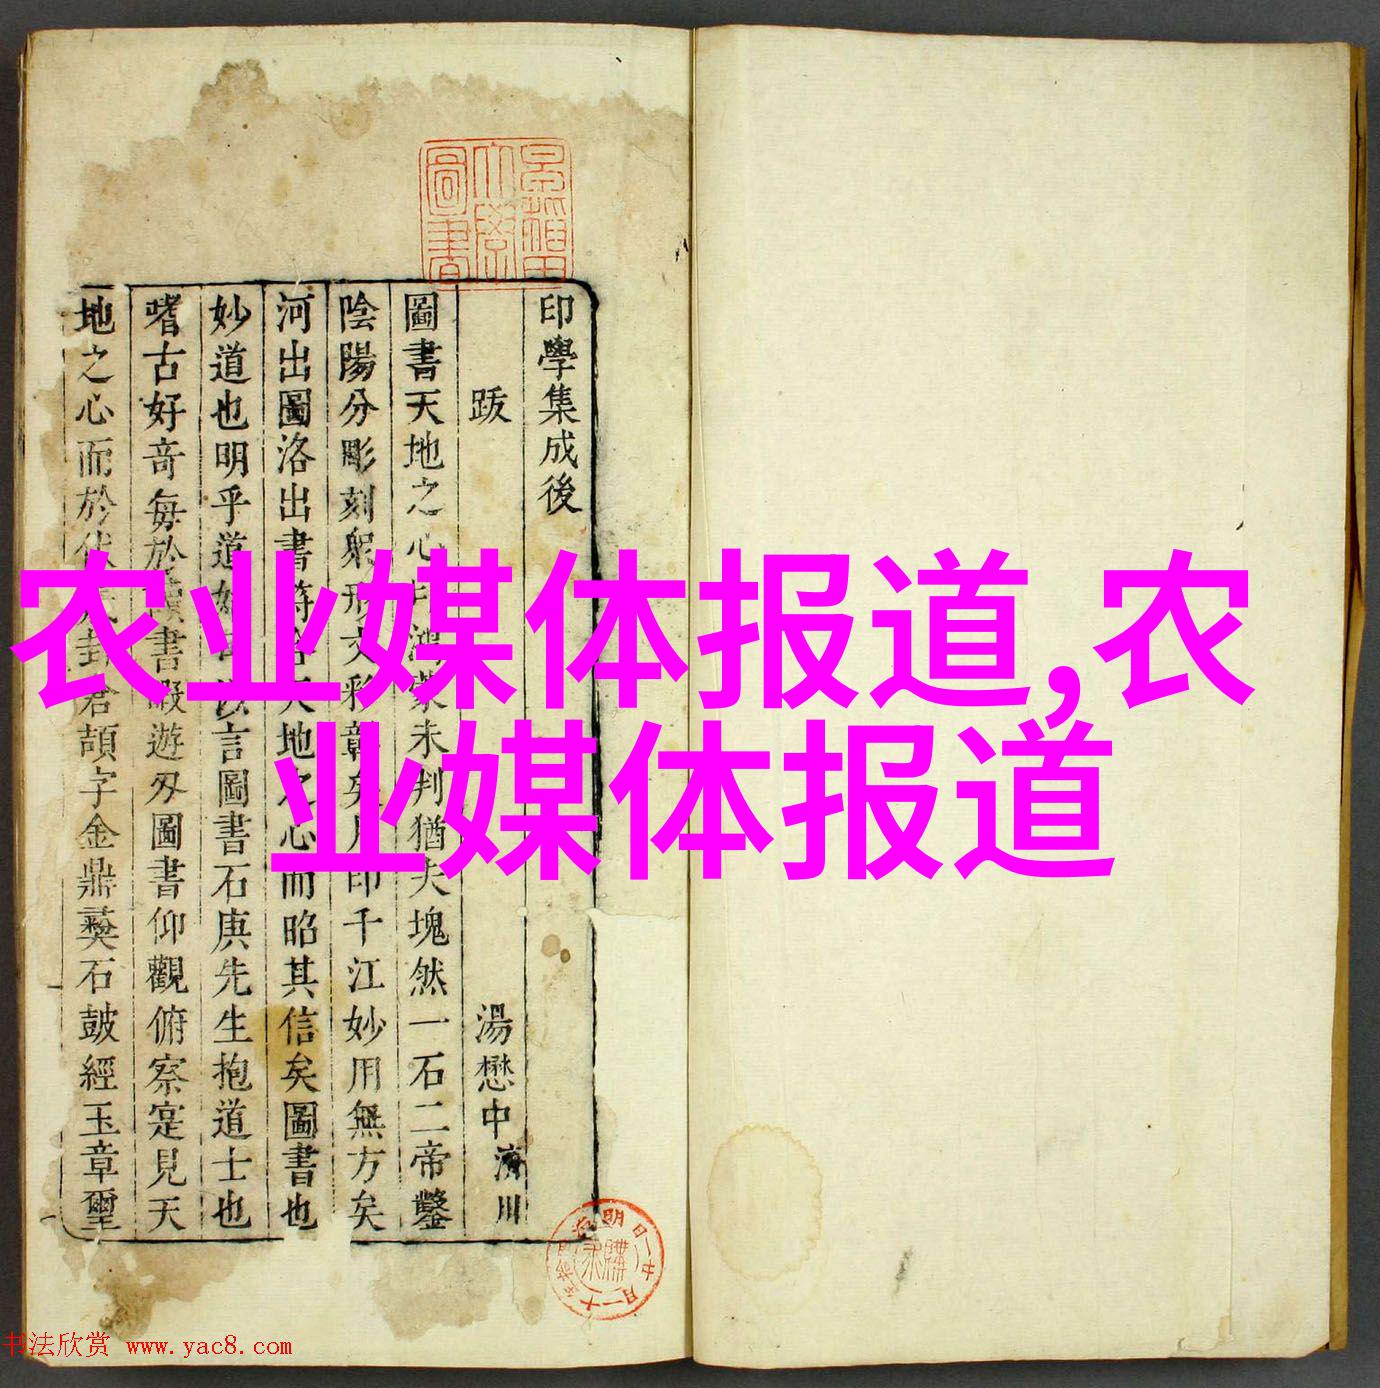 印學集成後
跋 湯懋中濟川
圖書天地之心 鴻濛未判猶夫塊然一石二帝鑿
陰陽分彫刻躬形文彩彰矣月印千江妙用無方矣
河出圖洛出書符 天地之心而昭其信矣圖書也
妙道也明乎道 言圖書石庚先生抱道士也
嗜古好奇每於讀書暇遊刃圖書仰觀俯察寔見天
地之心而於伏 卦倉頡字金鼎彝石鼓經玉章璽
農业媒体报道,农
业媒体报道
書法欣赏 www.yac8.com